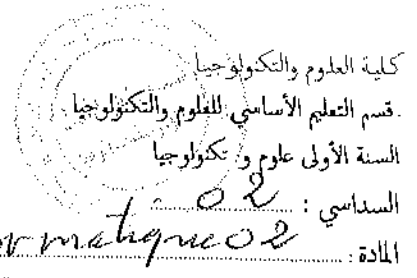 كلية العلوم والتكنولوجيا
قسم التعليم الأساسي للعلوم والتكنولوجيا
السنة الأولى علوم و تكنولوجيا
السداسي : 02
المادة :